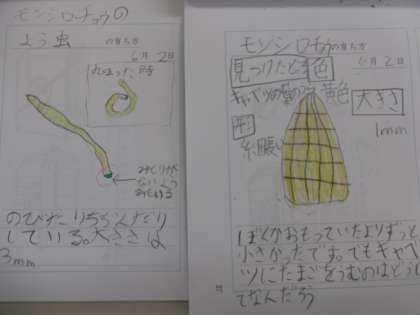 モンシロチョウの
よう虫 の育ち方
6月2日
丸まった時
みどりが
のびたりちぢんだり
している。大きさは
3mm
モンシロチョウ の育ち方
6月2日
見つけたとき 色
キャベツの葉の 黄色
大きさ
1mm
形
細長い
ぼくがおもっていたよりずっと
小さかったです。でもキャベ
ツにたまごをうむのはどうし
てなんだろう